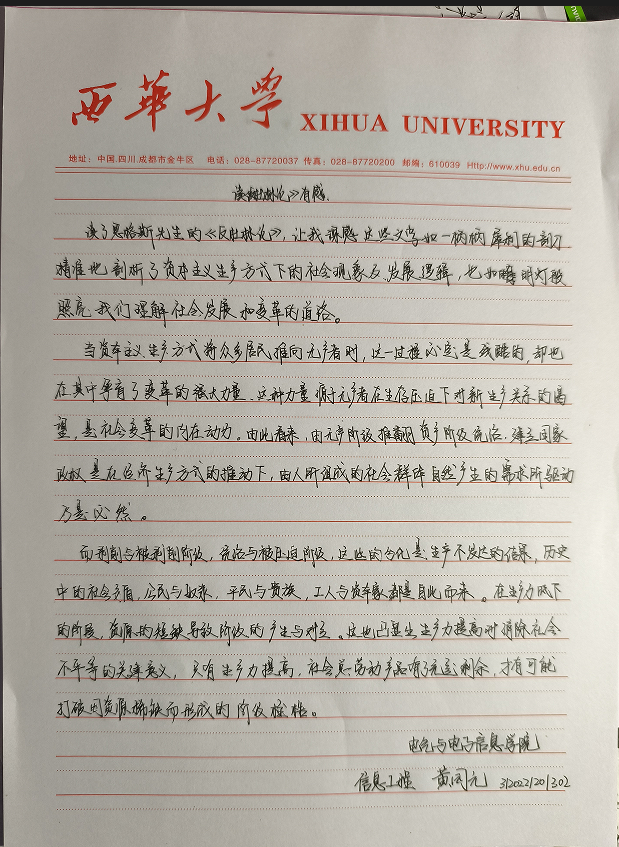 西華大学 XIHUA UNIVERSITY
地址：中国.四川.成都市金牛区 电话：028-87720037 传真：028-87720200 邮编：610039 Http://www.xhu.edu.cn
读《反杜林论》有感
读了恩格斯先生的《反杜林论》，让我深感这些文字如一柄柄犀利的剖刀
精准地剖析了资本主义生产方式下的社会现象与发展逻辑，也如明灯般
照亮我们理解社会发展和变革的道路。
当资本主义生产方式将众多居民推向无产者时，这一过程必定是残酷的，却也
在其中孕育了变革的强大力量。这种力量源于无产者在生存压迫下对新生产关系的渴
望，是社会变革的内在动力。由此看来，由无产阶级推翻资产阶级统治，建立国家
政权是在经济生产方式的推动下，由人所组成的社会群体自然产生的需求所驱动
方是必然。
而剥削与被剥削阶级，统治与被压迫阶级，这些的分化是生产不发达的结果，历史
中的社会矛盾，公民与奴隶，平民与贵族，工人与资本家都是自此而来。在生产力低下
的阶段，资源的短缺导致阶级的产生与对立。这也凸显生产力提高对消除社会
不平等的关键意义，只有生产力提高，社会总劳动产品有了充足剩余，才有可能
打破因资源稀缺而形成的阶级桎梏。
电气与电子信息学院
信息工程 黄闰元 312022120